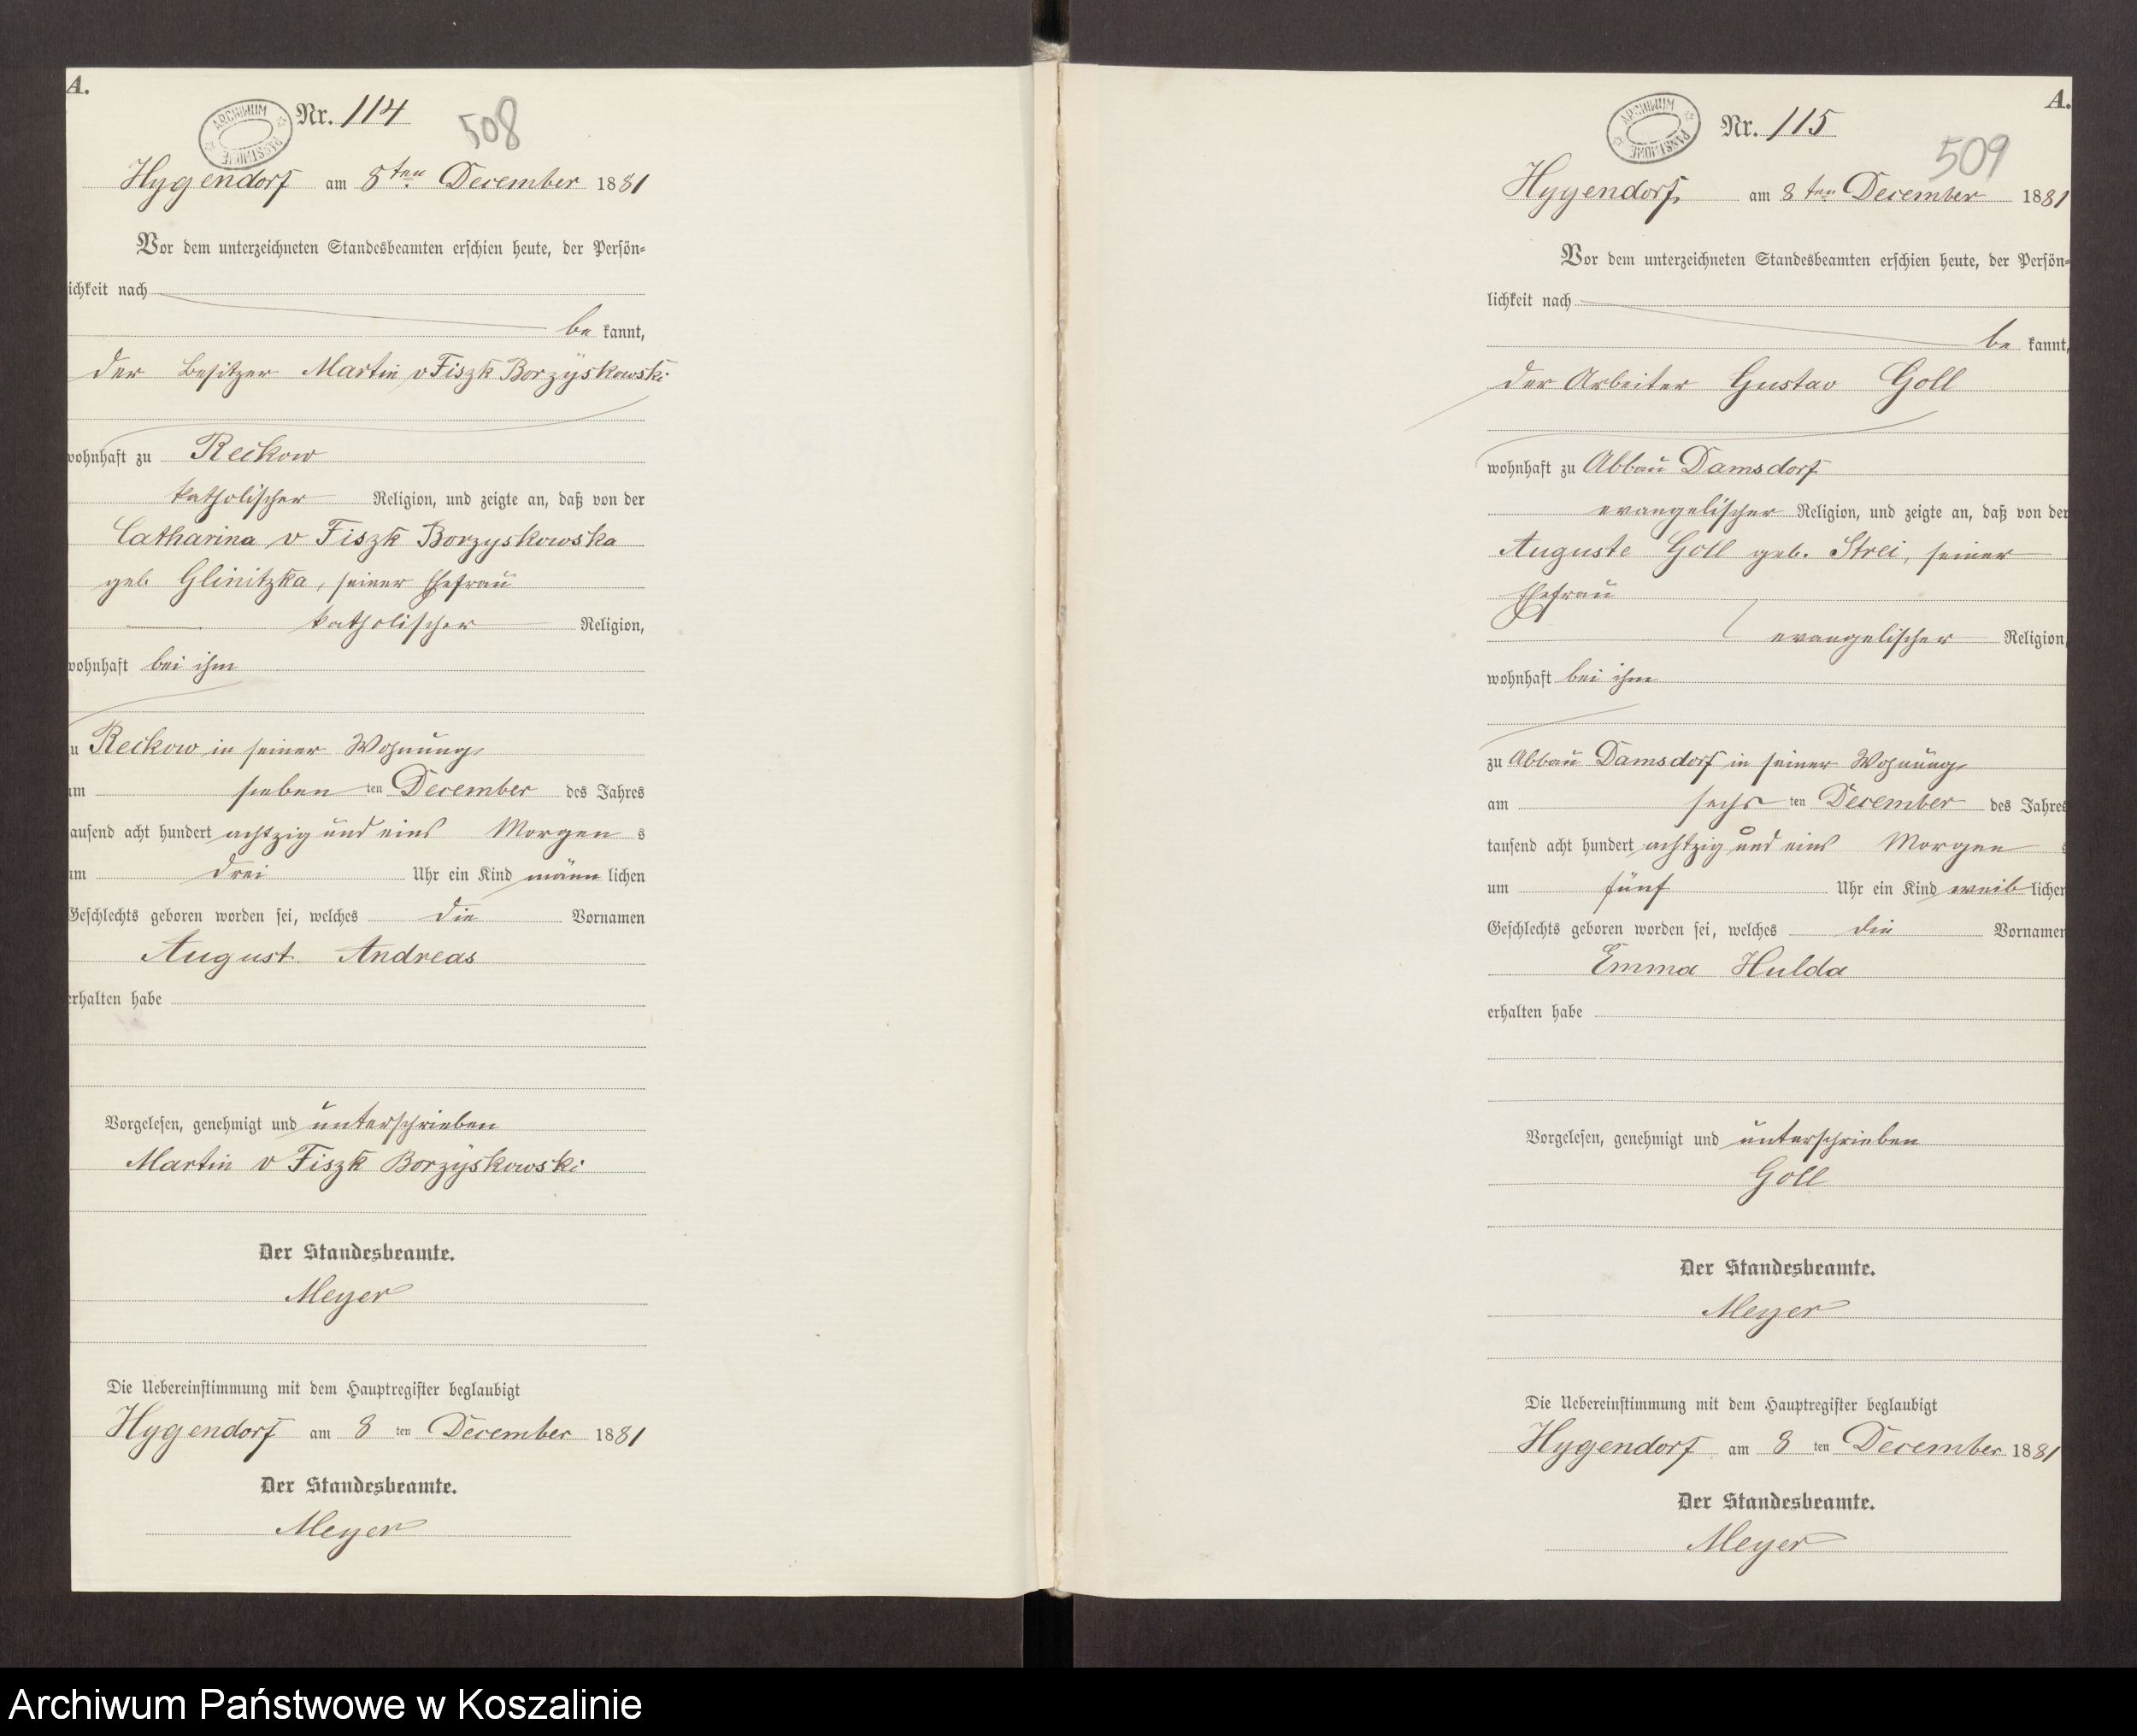 A.
ARCHIWUM PAŃSTWOWE
Nr. 114
508
Hygendorf am 8ten December 1881
Vor dem unterzeichneten Standesbeamten erschien heute, der Persön=
ichkeit nach
be kannt,
der Besitzer Martin v Fiszk Borzyskowski
wohnhaft zu Reckow
katholischer Religion, und zeigte an, daß von der
Catharina v Fiszk Borzyskowska
geb Glinitzka, seiner Ehefrau
katholischer Religion,
wohnhaft bei ihm
u Reckow in seiner Wohnung
am sieben ten December des Jahres
tausend acht hundert achtzig und eins Morgen s
um drei Uhr ein Kind männ lichen
Geschlechts geboren worden sei, welches die Vornamen
August Andreas
erhalten habe
Vorgelesen, genehmigt und unterschrieben
Martin v Fiszk Borzyskowski
Der Standesbeamte.
Meyer
Die Uebereinstimmung mit dem Hauptregister beglaubigt
Hygendorf am 8 ten December 1881
Der Standesbeamte.
Meyer
A.
ARCHIWUM PAŃSTWOWE
Nr. 115
509
Hygendorf am 8 ten December 1881
Vor dem unterzeichneten Standesbeamten erschien heute, der Persön=
lichkeit nach
be kannt,
der Arbeiter Gustav Goll
wohnhaft zu Abbau Damsdorf
evangelischer Religion, und zeigte an, daß von der
Auguste Goll geb. Strei, seiner
Ehefrau
evangelischer Religion,
wohnhaft bei ihm
zu Abbau Damsdorf in seiner Wohnung
am sechs ten December des Jahres
tausend acht hundert achtzig und eins Morgen s
um fünf Uhr ein Kind weib lichen
Geschlechts geboren worden sei, welches die Vornamen
Emma Hulda
erhalten habe
Vorgelesen, genehmigt und unterschrieben
Goll
Der Standesbeamte.
Meyer
Die Uebereinstimmung mit dem Hauptregister beglaubigt
Hygendorf am 8 ten December 1881
Der Standesbeamte.
Meyer
Archiwum Państwowe w Koszalinie